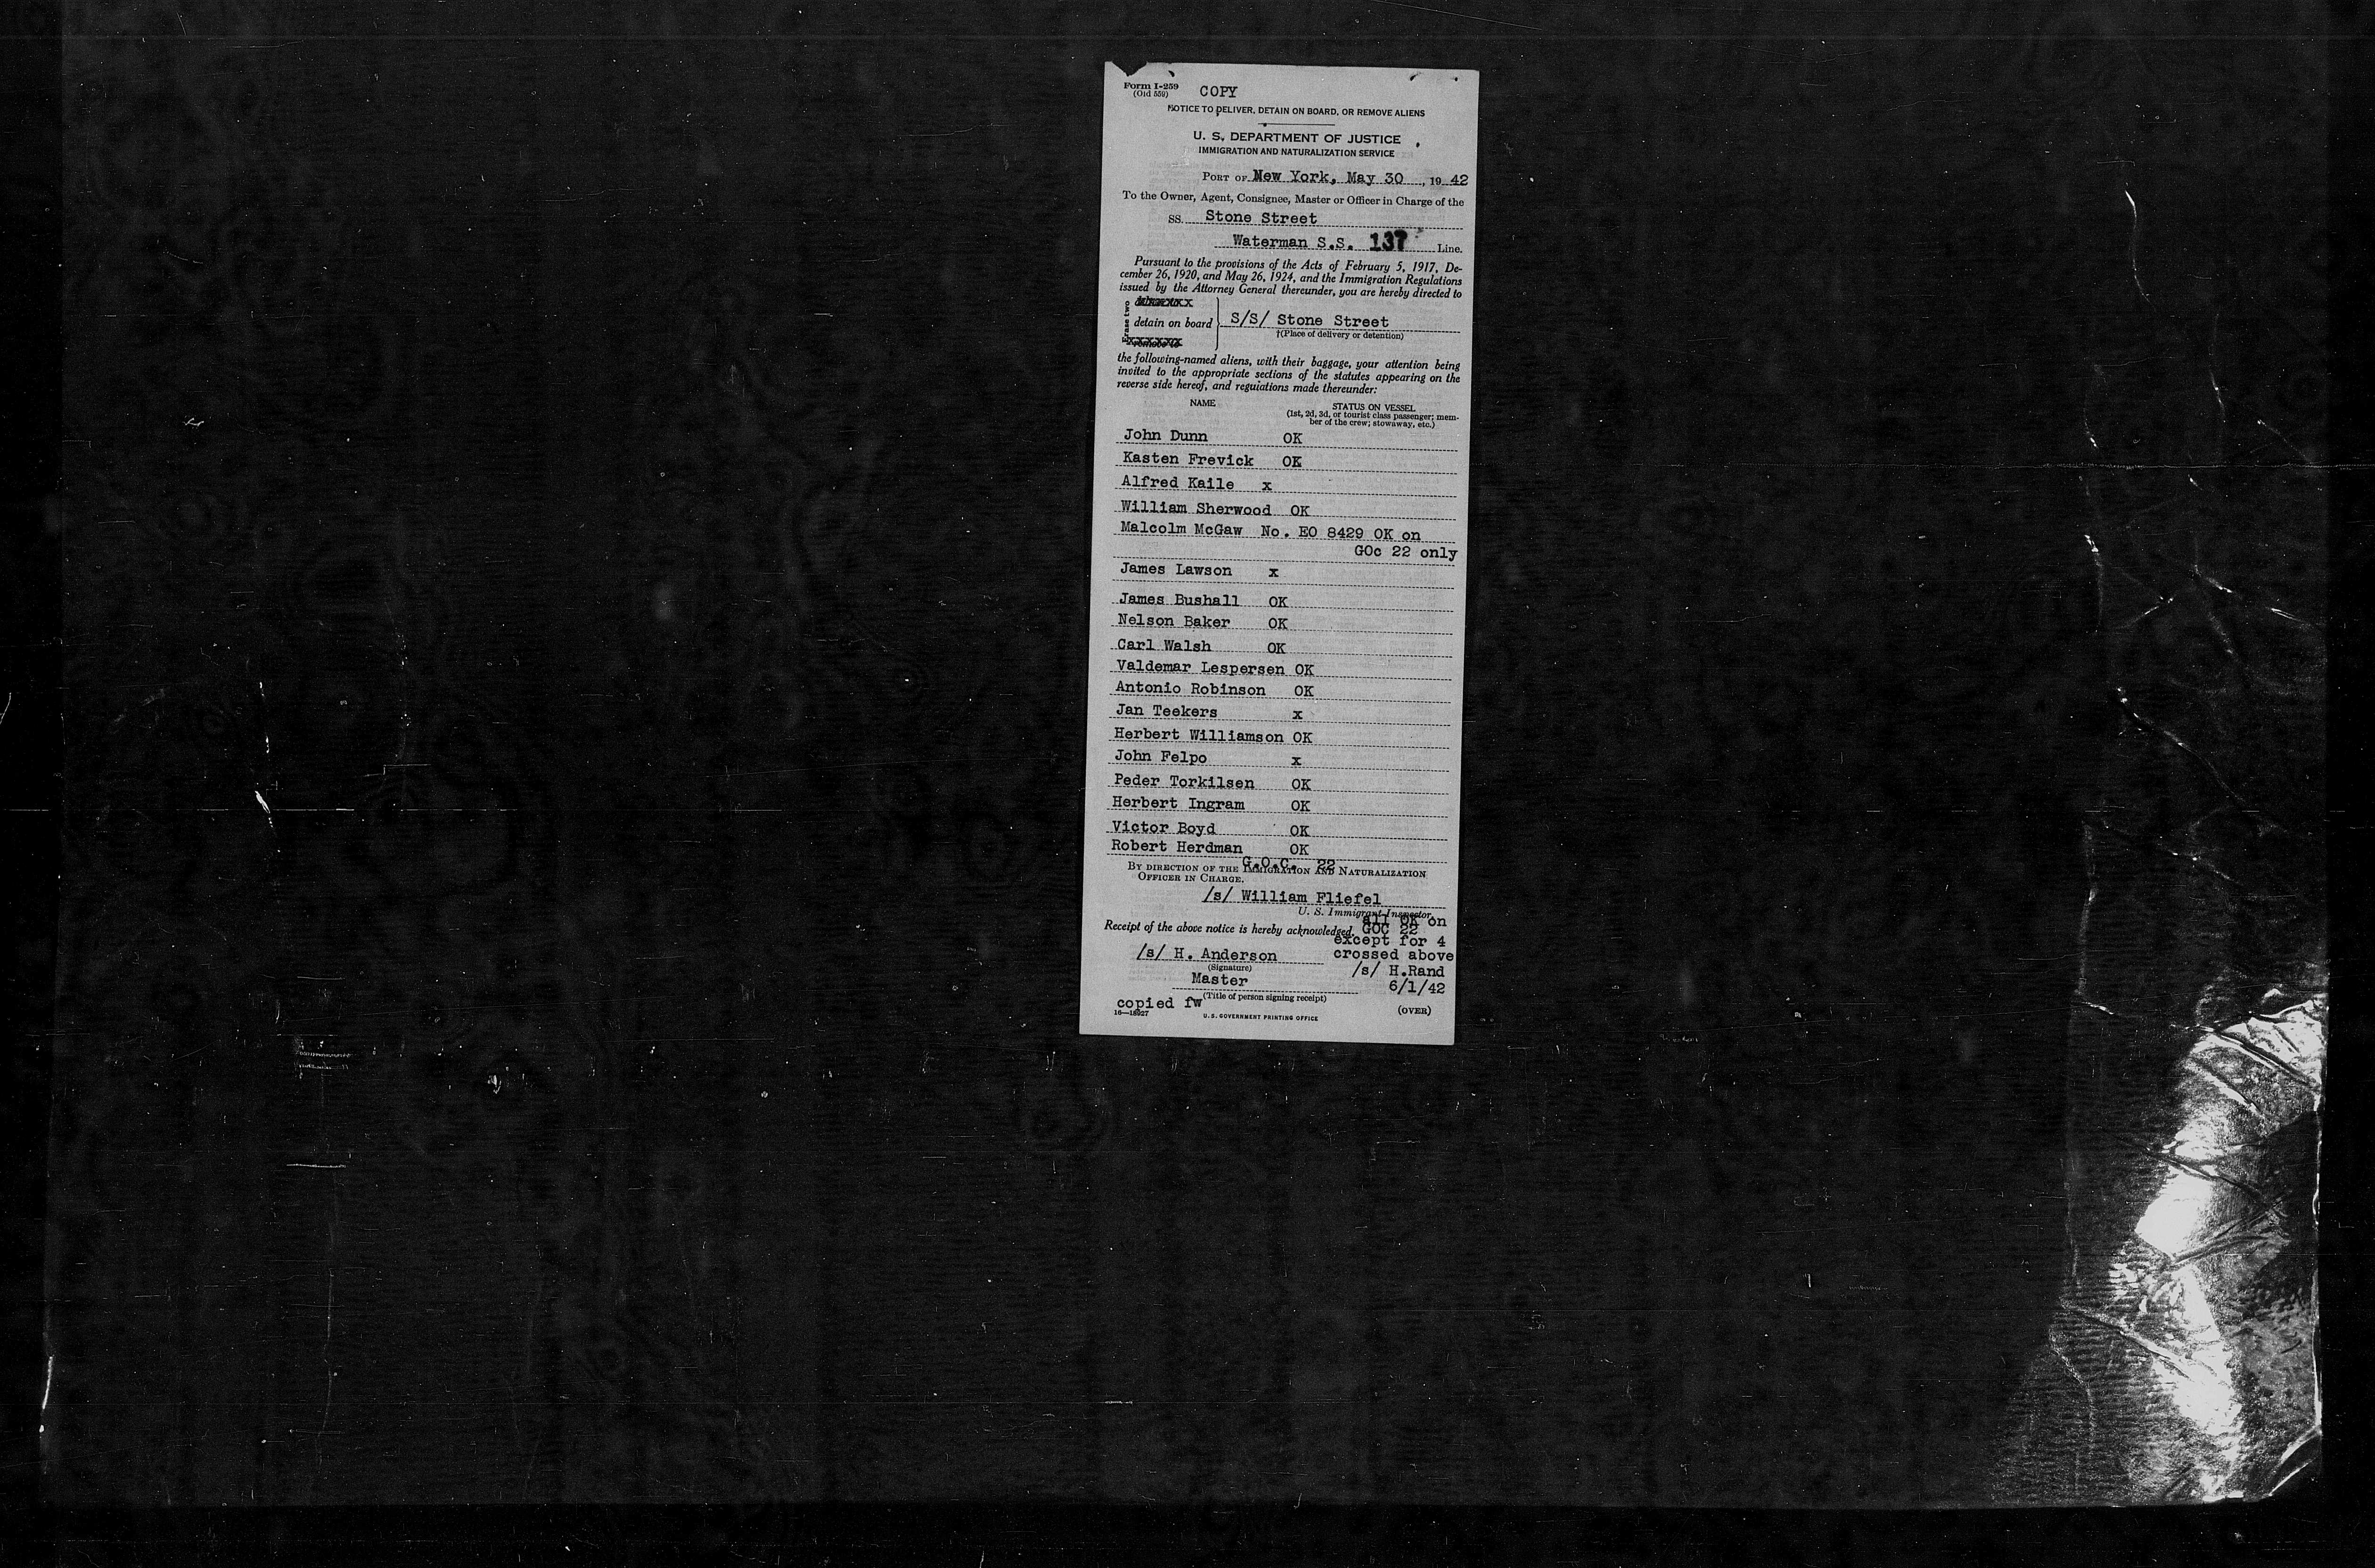 Form I-259
(Old 559)
COPY
NOTICE TO DELIVER, DETAIN ON BOARD, OR REMOVE ALIENS
U. S. DEPARTMENT OF JUSTICE
IMMIGRATION AND NATURALIZATION SERVICE
PORT OF New York, May 30, 1942
To the Owner, Agent, Consignee, Master or Officer in Charge of the
SS. Stone Street
Waterman S.S. 137 Line.
Pursuant to the provisions of the Acts of February 5, 1917, De-
cember 26, 1920, and May 26, 1924, and the Immigration Regulations
issued by the Attorney General thereunder, you are hereby directed to
Erase two
detain on board } S/S/ Stone Street
remove to
†(Place of delivery or detention)
the following-named aliens, with their baggage, your attention being
invited to the appropriate sections of the statutes appearing on the
reverse side hereof, and regulations made thereunder:
NAME STATUS ON VESSEL
(1st, 2d, 3d, or tourist class passenger; mem-
ber of the crew; stowaway, etc.)
John Dunn OK
Kasten Frevick OK
Alfred Kaile x
William Sherwood OK
Malcolm McGaw No. EO 8429 OK on
GOc 22 only
James Lawson x
James Bushall OK
Nelson Baker OK
Carl Walsh OK
Valdemar Lespersen OK
Antonio Robinson OK
Jan Teekers x
Herbert Williamson OK
John Felpo x
Peder Torkilsen OK
Herbert Ingram OK
Victor Boyd OK
Robert Herdman OK
G.O.C. 22
BY DIRECTION OF THE IMMIGRATION AND NATURALIZATION
OFFICER IN CHARGE.
/s/ William Fliefel
U. S. Immigrant Inspector.
all OK on
Receipt of the above notice is hereby acknowledged. GOC 22
except for 4
/s/ H. Anderson crossed above
(Signature) /s/ H.Rand
Master 6/1/42
(Title of person signing receipt)
copied fw
16—18927 U. S. GOVERNMENT PRINTING OFFICE (OVER)